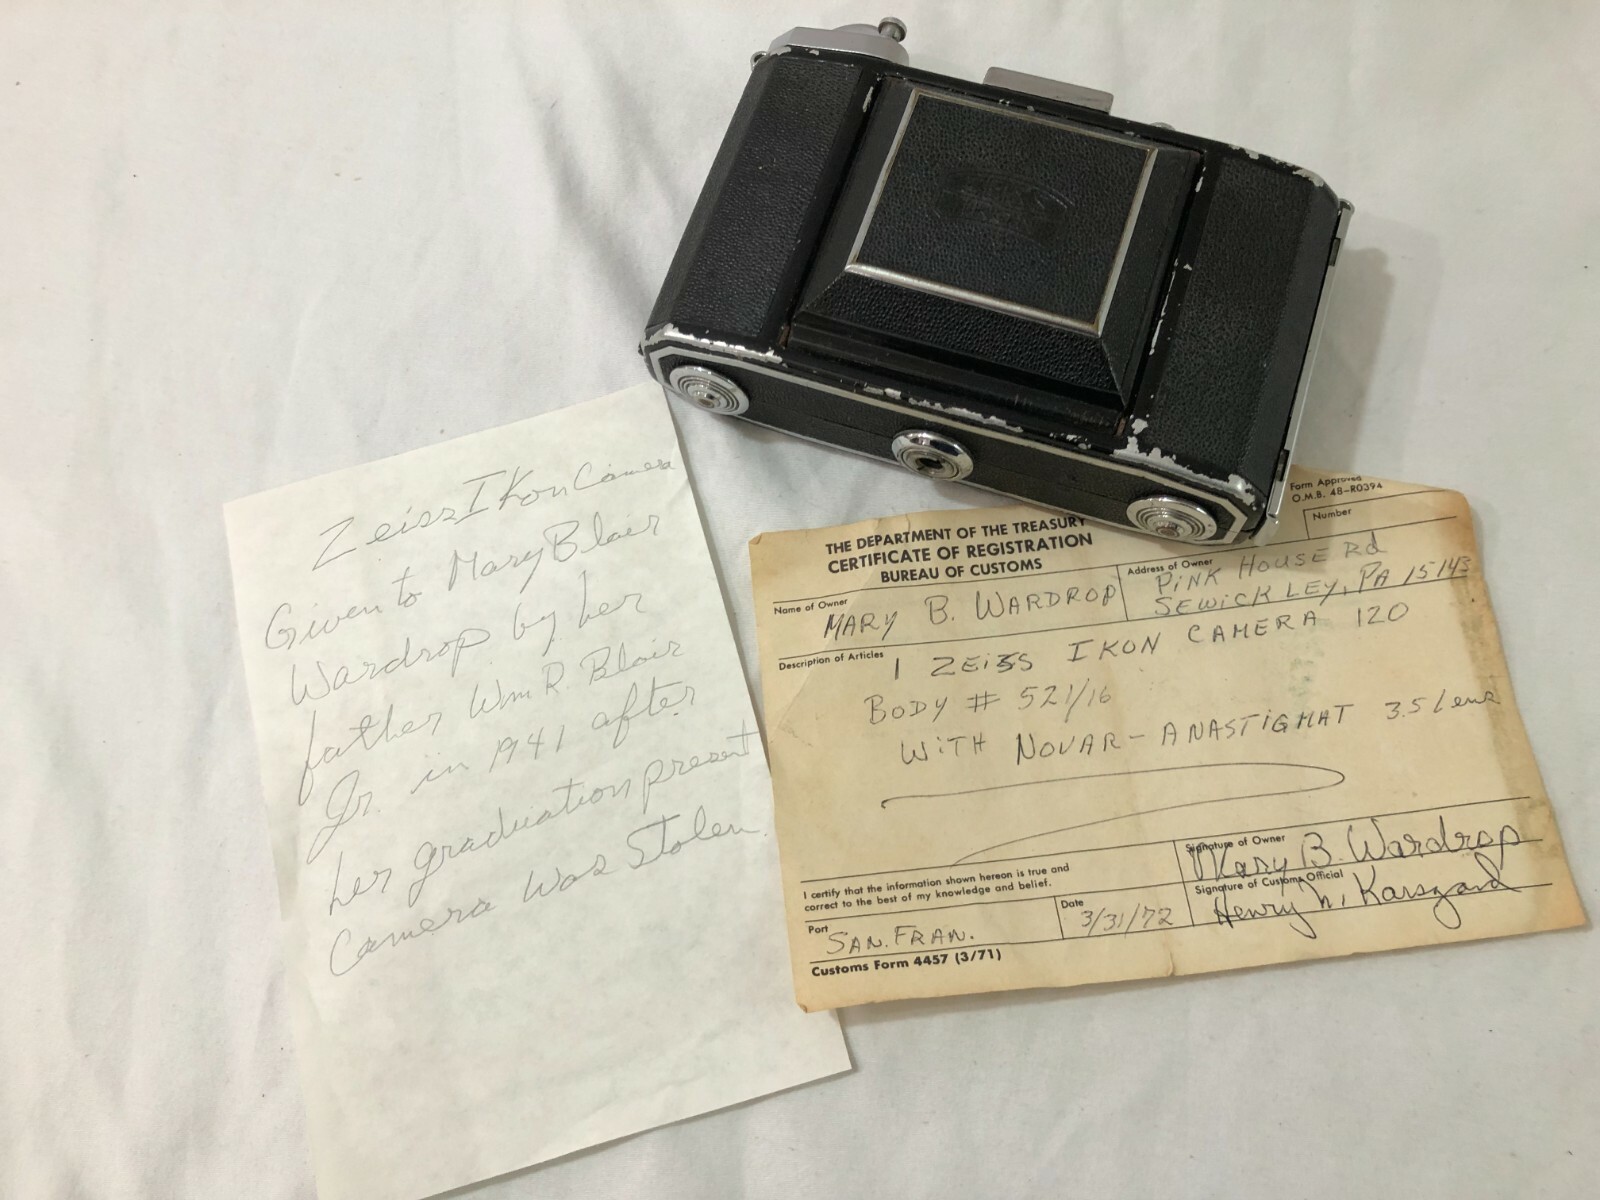 Zeiss Ikon Camera
Given to Mary Blair
Wardrop by her
father Wm R. Blair
Jr. in 1941 after
her graduation present
Camera was stolen.
Form Approved
O.M.B. 48-R0394
Number
THE DEPARTMENT OF THE TREASURY
CERTIFICATE OF REGISTRATION
BUREAU OF CUSTOMS
Name of Owner
MARY B. WARDROP
Address of Owner
PINK HOUSE Rd
SEWICKLEY, PA 15143
Description of Articles
1 ZEISS IKON CAMERA 120
BODY # 521/16
WITH NOVAR-ANASTIGMAT 3.5 Lens
I certify that the information shown hereon is true and
correct to the best of my knowledge and belief.
Signature of Owner
Mary B. Wardrop
Signature of Customs Official
Henry N. Karsgard
Port
SAN. FRAN.
Date
3/31/72
Customs Form 4457 (3/71)